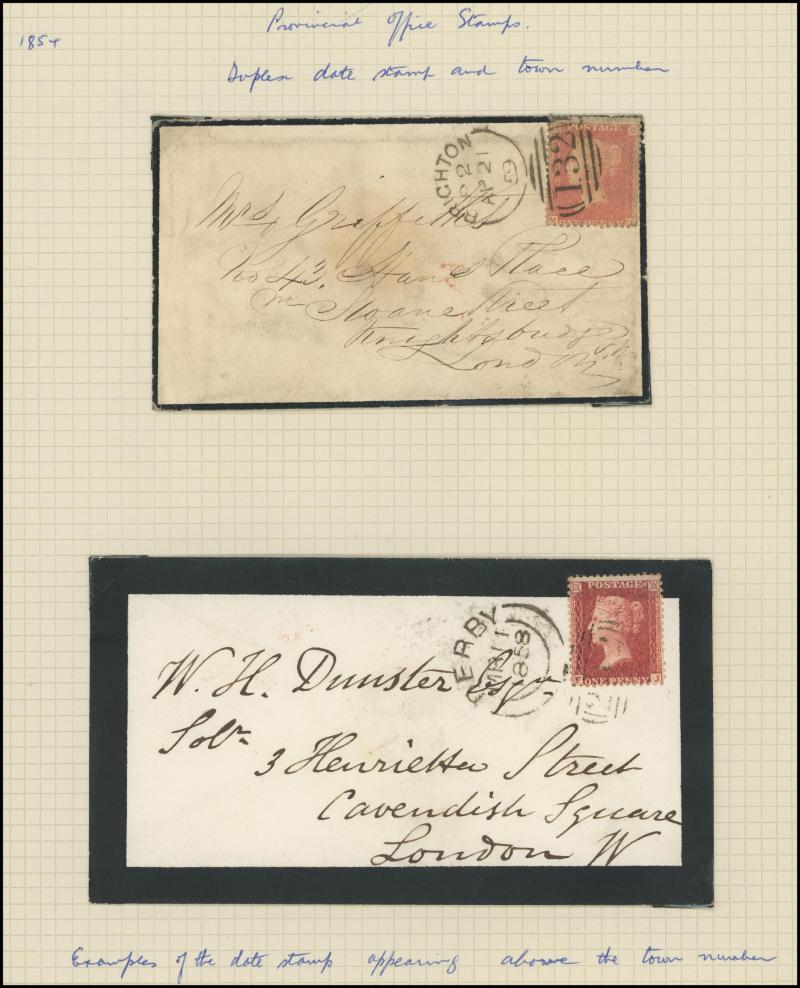 Provincial Office Stamps.
1854
Duplex date stamp and town number
BRICHTON
AP 21
132
POSTAGE
ONE PENNY
Mrs Griffiths
No 43. Hans Place
Sloane Street
Knightsbridge
London
DERBY
MR 11
1858
POSTAGE
ONE PENNY
W. H. Dunster Esqre
Solr
3 Henrietta Street
Cavendish Square
London W
Examples of the date stamp appearing above the town number